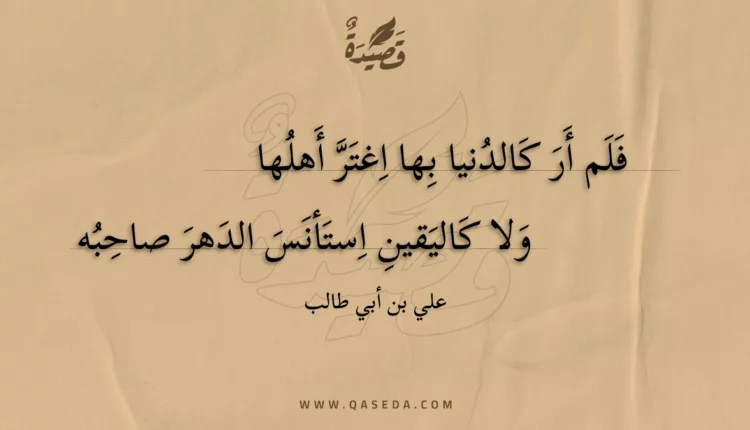 قَصِيْدَةٌ
فَلَم أَرَ كَالدُنيا بِها اِغتَرَّ أَهلُها
وَلا كَاليَقينِ اِستَأنَسَ الدَهرَ صاحِبُه
علي بن أبي طالب
WWW.QASEDA.COM